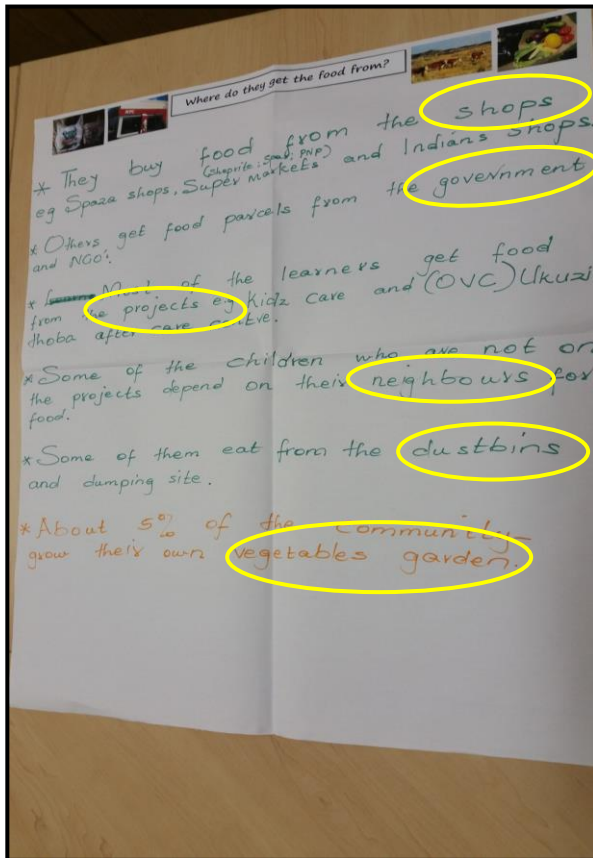 Where do they get the food from?
* They buy food from the shops
(shoprite; spar; PNP)
eg Spaza shops, Super markets and Indians shops.
* Others get food parcels from the government
and NGO's.
* Most of the learners get food
from the projects eg Kidz care and (OVC) Ukuzi
thoba after care centre.
* Some of the children who are not on
the projects depend on their neighbours for
food.
* Some of them eat from the dustbins
and dumping site.
* About 5% of the community
grow their own vegetables garden.